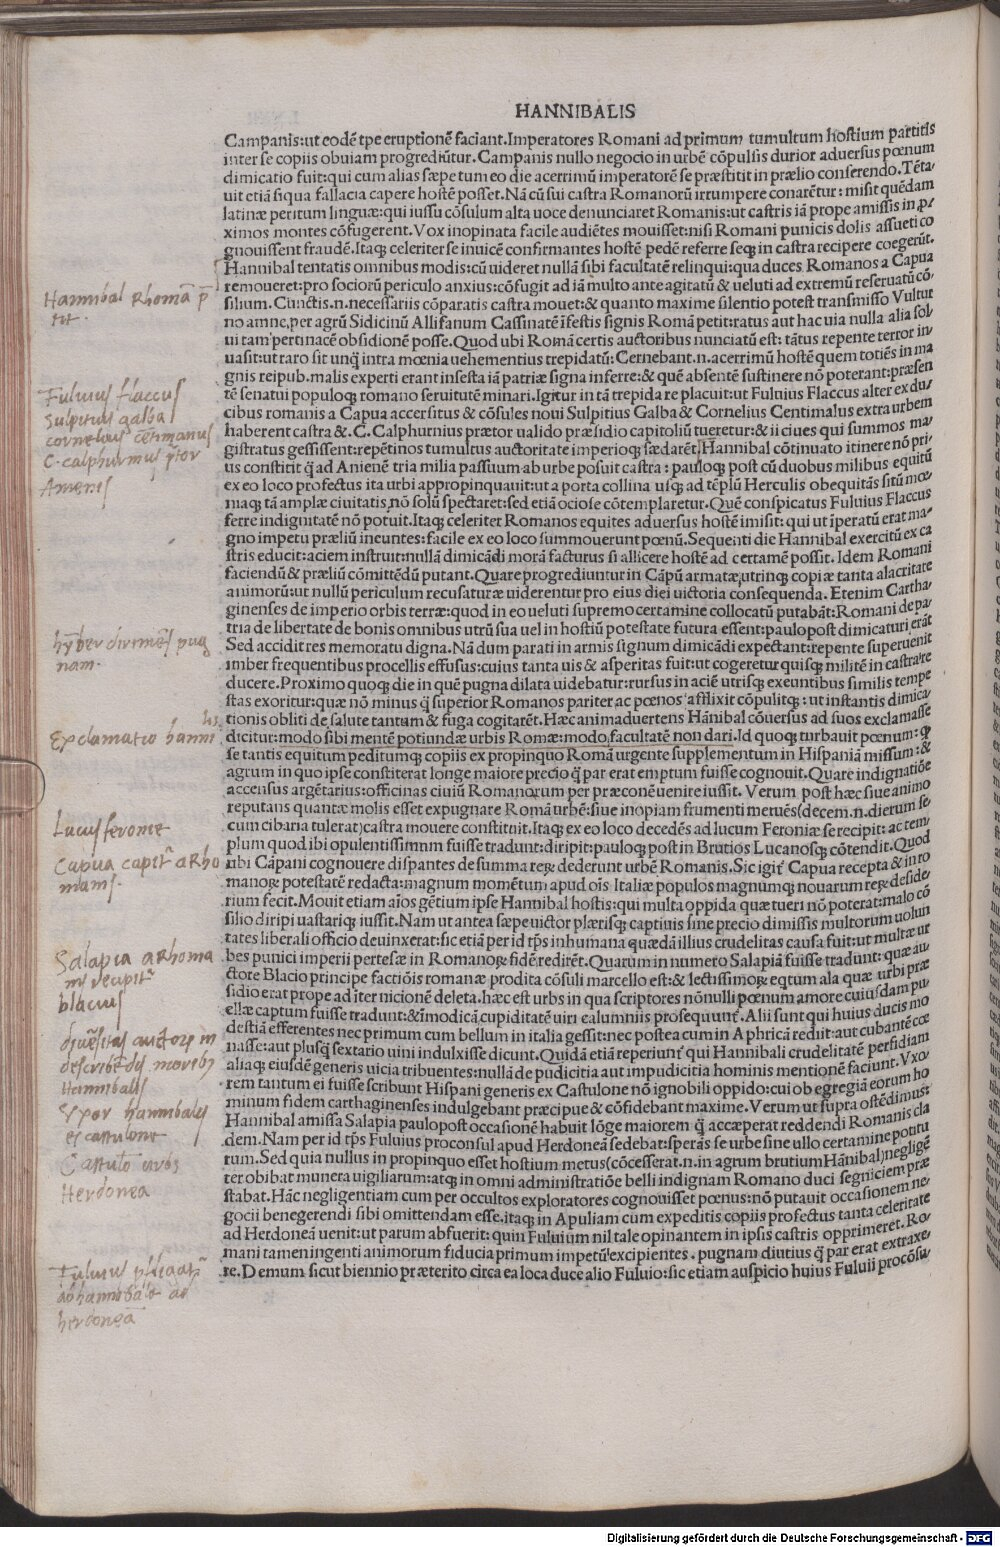 HANNIBALIS
Campanis:ut eodē tpe eruptionē faciant.Imperatores Romani ad primum tumultum hostium partitis
inter se copiis obuiam progrediūtur.Campanis nullo negocio in urbē cōpulsis durior aduersus pœnum
dimicatio fuit:qui cum alias sæpe tum eo die acerrimū imperatorē se præstitit in prælio conserendo.Tēta/
uit etiā siqua fallacia capere hostē posset.Nā cū sui castra Romanorū irrumpere conarētur: misit quēdam
latinæ peritum linguæ:qui iussu cōsulum alta uoce denunciaret Romanis:ut castris iā prope amissis in p/
ximos montes cōfugerent.Vox inopinata facile audiētes mouisset:nisi Romani punicis dolis assueti co
gnouissent fraudē.Itaq; celeriter se inuicē confirmantes hostē pedē referre seq; in castra recipere coegerūt.
Hannibal tentatis omnibus modis:cū uideret nullā sibi facultatē relinqui:qua duces Romanos a Capua
remoueret:pro sociorū periculo anxius:cōfugit ad iā multo ante agitatū & ueluti ad extremū reseruatū cō
silium.Cunctis.n.necessariis cōparatis castra mouet:& quanto maxime silentio potest transmisso Vultur
no amne,per agrū Sidicinū Allifanum Cassinatē ifestis signis Romā petit:ratus aut hac uia nulla alia sol
ui tam pertinacē obsidionē posse.Quod ubi Romā certis auctoribus nunciatū est: tātus repente terror in/
uasit:ut raro sit unq̄ intra mœnia uehementius trepidatū:Cernebant.n.acerrimū hostē quem totiēs in ma
gnis reipub.malis experti erant infesta iā patriæ signa inferre:& quē absentē sustinere nō poterant:præsen
tē senatui populoq; romano seruitutē minari.Igitur in tā trepida re placuit:ut Fuluius Flaccus alter ex du/
cibus romanis a Capua accersitus & cōsules noui Sulpitius Galba & Cornelius Centimalus extra urbem
haberent castra &.C.Calphurnius prætor ualido præsidio capitoliū tueretur:& ii ciues qui summos ma/
gistratus gessissent:repētinos tumultus auctoritate imperioq; sædarēt.Hannibal cōtinuato itinere nō pri/
us constitit q̄ ad Anienē tria milia passuum ab urbe posuit castra : pauloq; post cū duobus milibus equitū
ex eo loco profectus ita urbi appropinquauit:ut a porta collina usq; ad tēplū Herculis obequitās sitū mœ
niaq; tā amplæ ciuitatis,nō solū spectaret:sed etiā ociose cōtemplaretur.Quē conspicatus Fuluius Flaccus
ferre indignitatē nō potuit.Itaq; celeriter Romanos equites aduersus hostē imisit: qui ut iperatū erat ma/
gno impetu præliū ineuntes:facile ex eo loco summouerunt pœnū.Sequenti die Hannibal exercitū ex ca
stris educit:aciem instruit:nullā dimicādi morā facturus si allicere hostē ad certamē possit. Idem Romani
faciendū & præliū cōmittēdū putant.Quare progrediuntur in Cāpū armatæ,utrinq; copiæ tanta alacritate
animorū:ut nullū periculum recusaturæ uiderentur pro eius diei uictoria consequenda. Etenim Cartha/
ginenses de imperio orbis terræ:quod in eo ueluti supremo certamine collocatū putabāt:Romani de pa/
tria de libertate de bonis omnibus utrū sua uel in hostiū potestate futura essent:paulopost dimicaturi erāt
Sed accidit res memoratu digna.Nā dum parati in armis signum dimicādi expectant:repente superuenit
imber frequentibus procellis effusus:cuius tanta uis & asperitas fuit:ut cogeretur quisq; militē in castra re
ducere.Proximo quoq; die in quē pugna dilata uidebatur:rursus in aciē utrisq; exeuntibus similis tempe
stas exoritur:quæ nō minus q̄ superior Romanos pariter ac pœnos afflixit cōpulitq; : ut instantis dimica/
tionis obliti de salute tantum & fuga cogitarēt.Hæc animaduertens Hānibal cōuersus ad suos exclamasse
dicitur:modo sibi mentē potiundæ urbis Romæ:modo,facultatē non dari.Id quoq; turbauit pœnum: q
se tantis equitum peditumq; copiis ex propinquo Romā urgente supplementum in Hispaniā missum:&
agrum in quo ipse constiterat longe maiore precio q̄ par erat emptum fuisse cognouit.Quare indignatiōe
accensus argētarius:officinas ciuiū Romanorum per præconē uenire iussit. Verum post hæc siue animo
reputans quantæ molis esset expugnare Romā urbē:siue inopiam frumenti meruēs(decem.n.dierum se
cum cibaria tulerat)castra mouere constituit.Itaq; ex eo loco decedēs ad lucum Feroniæ se recipit: ac tem/
plum quod ibi opulentissimnm fuisse tradunt:diripit:pauloq; post in Brutios Lucanosq; cōtendit.Quod
ubi Cāpani cognouere dispantes de summa reꝝ dederunt urbē Romanis.Sic igit̄ Capua recepta & in ro
manoꝝ potestatē redacta:magnum momētum apud ois Italiæ populos magnumq; nouarum reꝝ deside/
rium fecit.Mouit etiam aios gētium ipse Hannibal hostis:qui multa oppida quæ tueri nō poterat:malo cō
silio diripi uastariq; iussit.Nam ut antea sæpe uictor plærisq; captiuis sine precio dimissis multorum uolun
tates liberali officio deuinxerat:sic etiā per id tp̄s inhumana quædā illius crudelitas causa fuit:ut multæ ur
bes punici imperii pertesæ in Romanoꝝ fidē redirēt.Quarum in numero Salapiā fuisse tradunt: quæ au
ctore Blacio principe factiōis romanæ prodita cōsuli marcello est:& lectissimoꝝ eqtum ala quæ urbi præ
sidio erat prope ad iter nicionē deleta.hæc est urbs in qua scriptores nōnulli pœnum amore cuiusdam pu
ellæ captum fuisse tradunt:& imodicā,cupiditatē uiri calumniis prosequunt̄. Alii sunt qui huius ducis mo
destiā efferentes nec primum cum bellum in italia gessit:nec postea cum in Aphricā rediit:aut cubantē cœ
nasse:aut plusq̄ sextario uini indulxisse dicunt.Quidā etiā reperiunt̄ qui Hannibali crudelitatē perfidiam
aliaq; eiusdē generis uicia tribuentes:nullā de pudicitia aut impudicitia hominis mentionē faciunt.Vxo/
rem tantum ei fuisse scribunt Hispani generis ex Castulone nō ignobili oppido:cui ob egregiā eorum ho
minum fidem carthaginenses indulgebant præcipue & cōfidebant maxime. Verum ut supra ostēdimus:
Hannibal amissa Salapia paulopost occasionē habuit lōge maiorem q̄ accæperat reddendi Romanis cla
dem. Nam per id tp̄s Fuluius proconsul apud Herdoneā sedebat:sperās se urbe sine ullo certamine potitu
rum. Sed quia nullus in propinquo esset hostium metus(cōcesserat.n.in agrum brutium Hānibal)negligē
ter obibat munera uigiliarum:atq; in omni administratiōe belli indignam Romano duci segniciem præ
stabat. Hāc negligentiam cum per occultos exploratores cognouisset pœnus:nō putauit occasionem ne/
gocii benegerendi sibi omittendam esse.itaq; in Apuliam cum expeditis copiis profectus tanta celeritate
ad Herdoneā uenit:ut parum abfuerit: quin Fuluium nil tale opinantem in ipsis castris opprimeret. Ro/
mani tamen ingenti animorum fiducia primum impetū excipientes . pugnam diutius q̄ par erat extraxe/
re.Demum sicut biennio præterito circa ea loca duce alio Fuluio:sic etiam auspicio huius Fuluii procōsu
Hannibal Rhomā p̄
tit.
Fuluius flaccus
Sulpitius galba
cornelius cētimanus
C. calphurnius p̄tor
Anienis
hȳber dirimēs pug
nam.
Exclamatio hanni
lis.
Lucus feronie
Capua capit̄ a Rho
manis.
Salapia a Rhoma
nis recipit̄
blacius
diuēsitas auctorꝝ in
describēdis moribꝫ
Hannibalis
Vxor hannibalis
ex castulone
Castulo urbs
Herdonea
Fuluius
ab hannibale ad
herdoneā
Digitalisierung gefördert durch die Deutsche Forschungsgemeinschaft - DFG